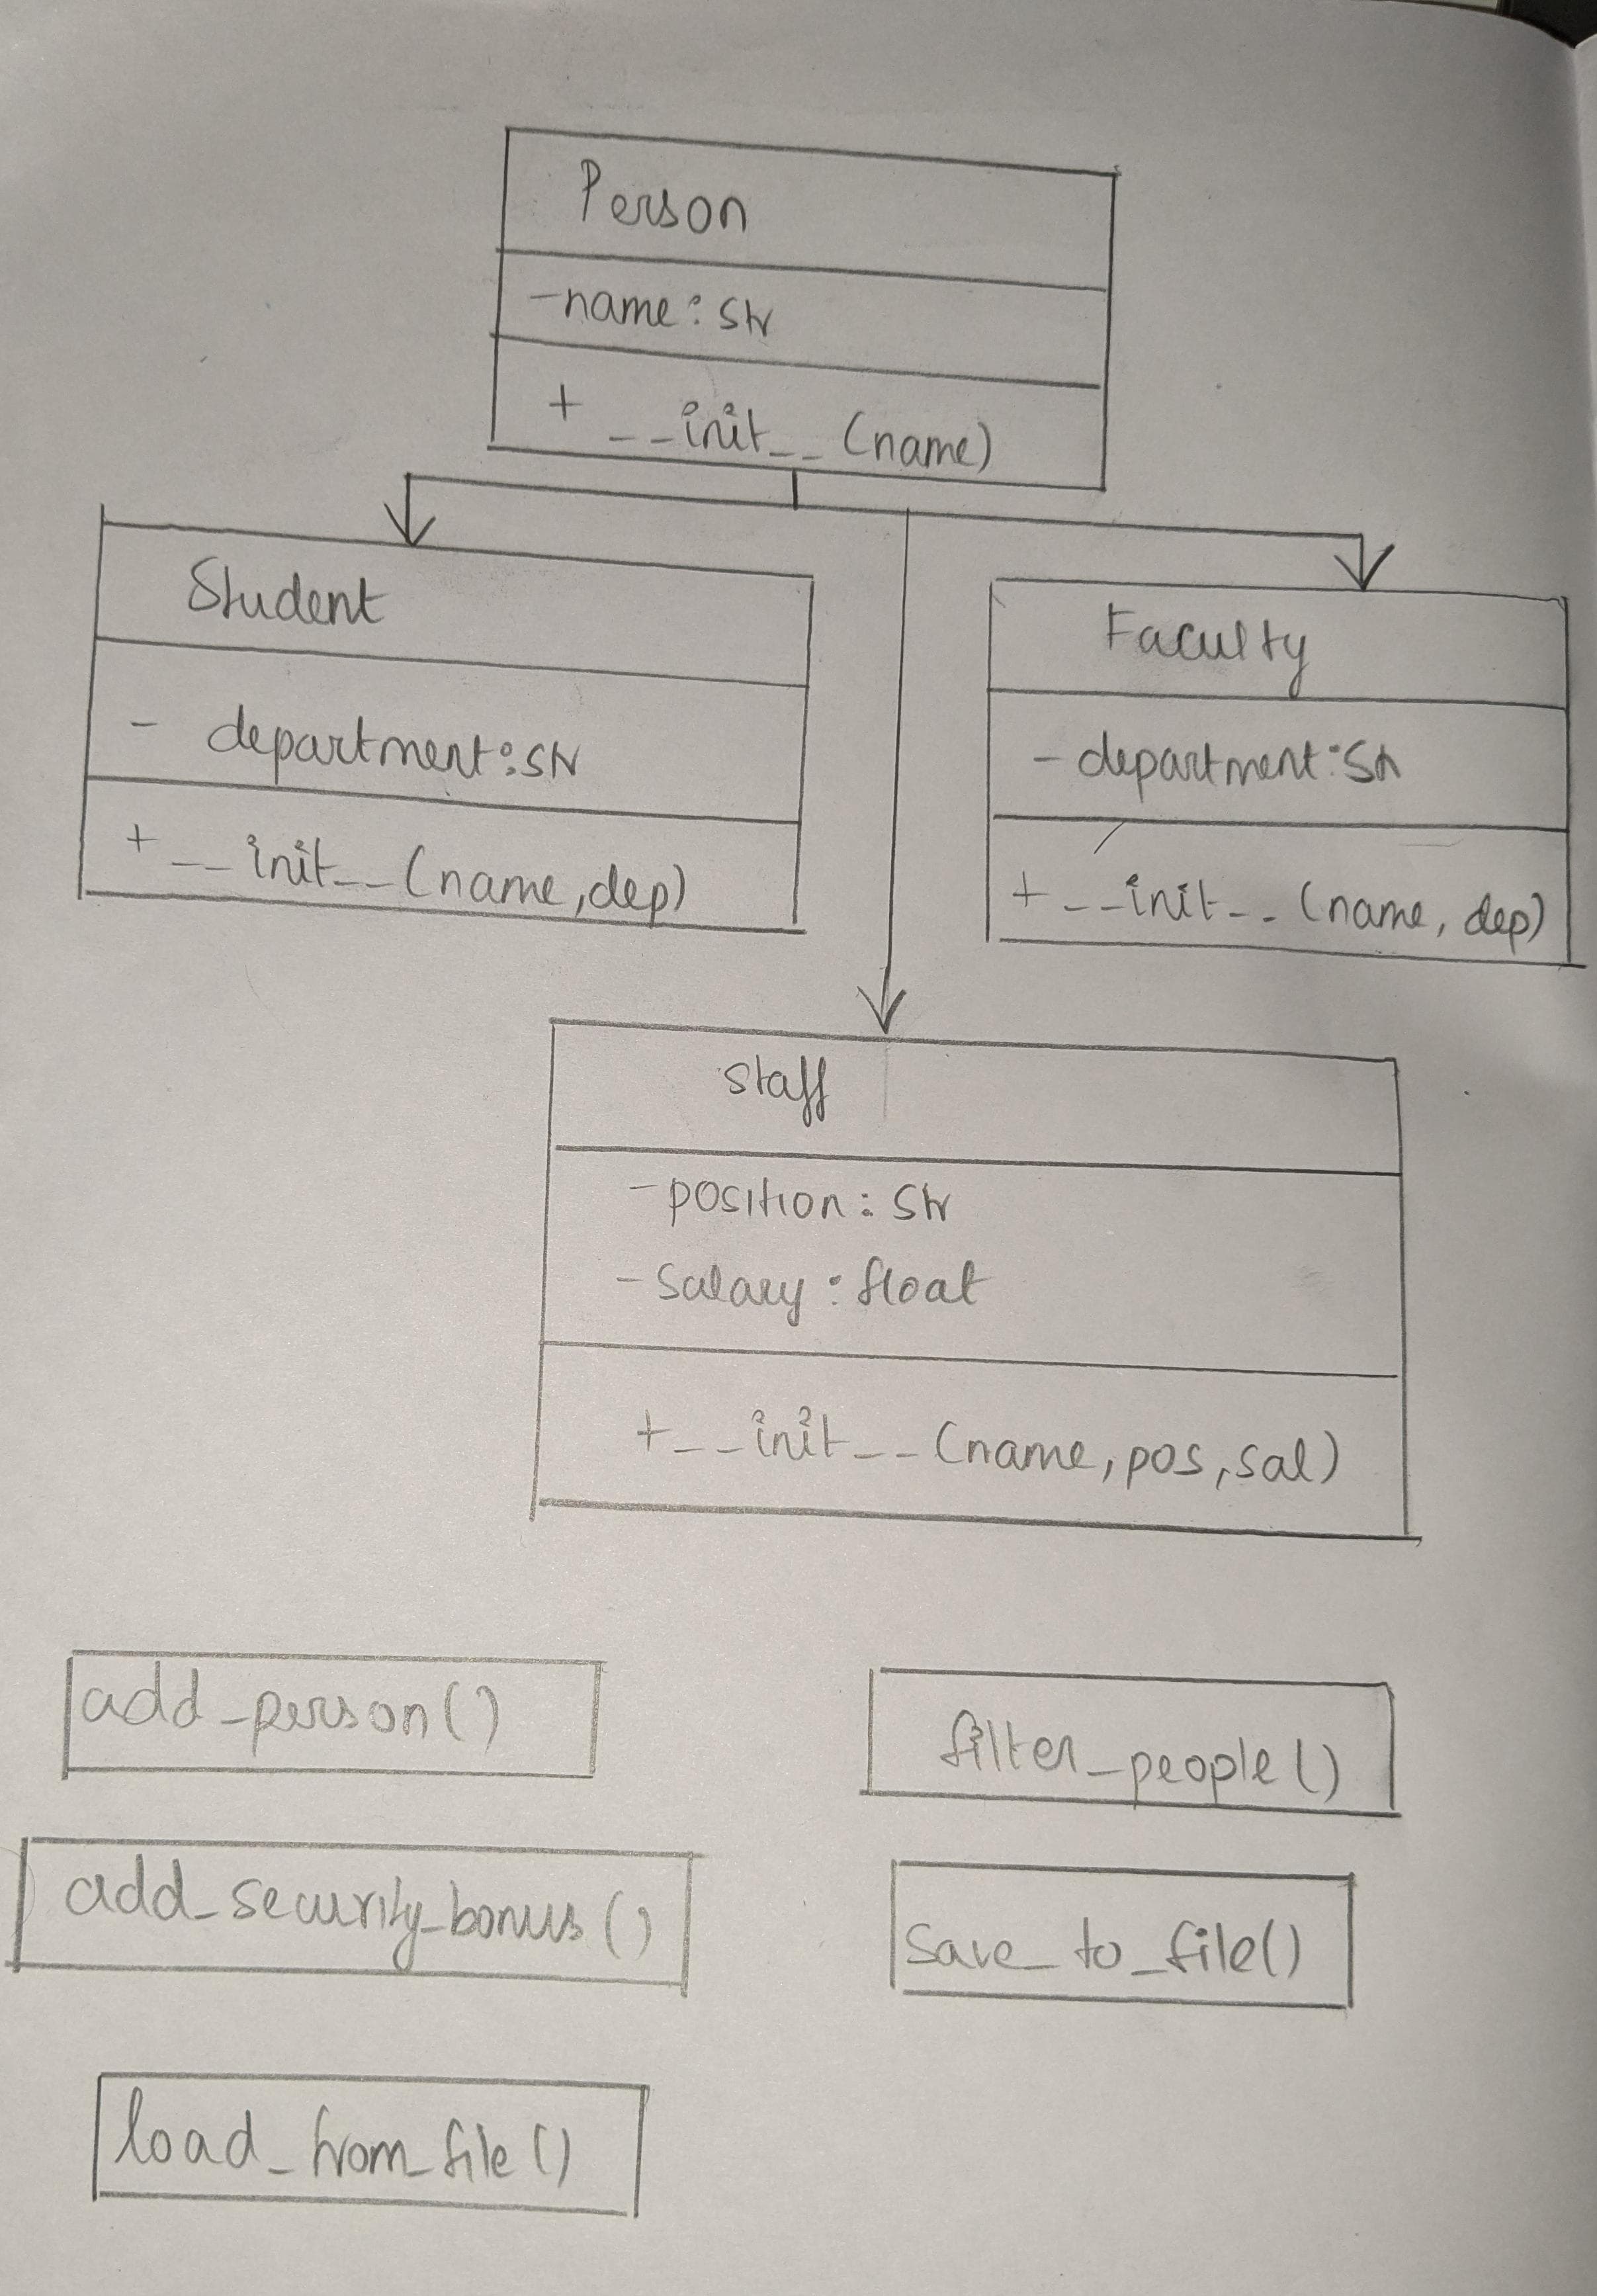 Person
-name: str
+ __init__ (name)
Student
- department: str
+ __init__ (name, dep)
Faculty
- department: str
+ __init__ (name, dep)
staff
- position: str
- Salary: float
+ __init__ (name, pos, sal)
add_person()
filter_people()
add_security_bonus()
Save_to_file()
load_from_file()